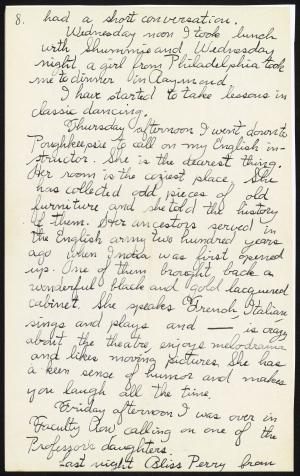 8. had a short conversation.
Wednesday noon I took lunch
with Shummie and Wednesday
night a girl from Philadelphia took
me to dinner in Raymond
I have started to take lessons in
classic dancing.
Thursday afternoon I went down to
Poughkeepsie to call on my English in-
structor. She is the dearest thing.
Her room is the coziest place. She
has collected odd pieces of old
furniture and she told the history
of them. Her ancestors served in
the English army two hundred years
ago when India was first opened
up. One of them brought back a
wonderful black and gold lacquered
cabinet. She speaks French, Italian
sings and plays and — is crazy
about the theatre, enjoys melodrama
and likes moving pictures. She has
a keen sense of humor and makes
you laugh all the time.
Friday afternoon I was over in
Faculty Row calling on one of the
Professor's daughters.
Last night Bliss Perry from